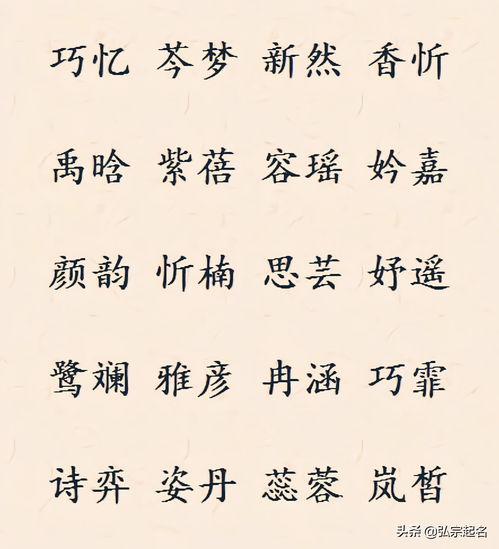 巧忆 芩梦 新然 香忻
禹晗 紫蓓 容瑶 妗嘉
颜韵 忻楠 思芸 妤遥
鹭斓 雅彦 冉涵 巧霏
诗弈 姿丹 蕊蓉 岚皙
头条 @弘宗起名